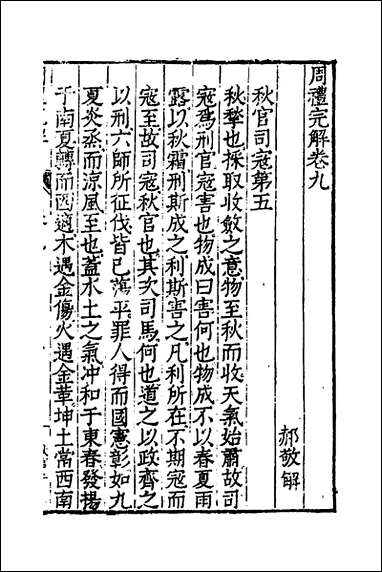 周禮完解卷九
郝敬解
秋官司寇第五
秋揫也揉取收斂之意物至秋而收天氣始肅故司
寇爲刑官寇害也物成曰害何也物成不以春夏雨
露以秋霜刑斯成之利斯害之凡利所在不期寇而
寇至故司寇秋官也其次司馬何也道之以政齊之
以刑六師所征伐皆已蕩平罪人得而國憲彰如九
夏炎蒸而涼風至也蓋水土之氣冲和于東春發揚
于南夏轉而西適木遇金傷火遇金革坤土常西南